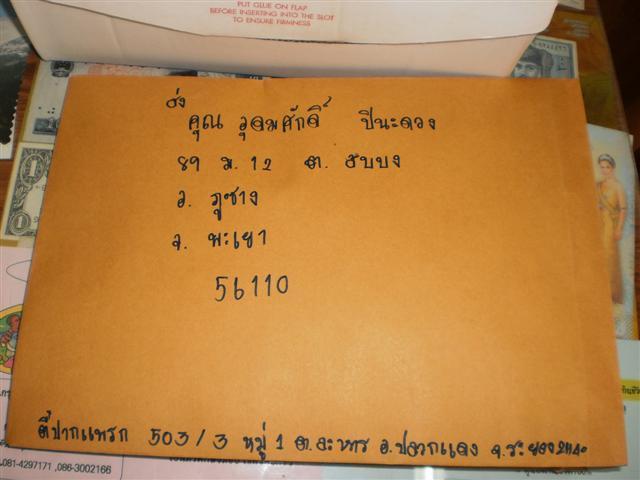 PUT GLUE ON FLAP
BEFORE INSERTING INTO THE SLOT
TO ENSURE FIRMNESS
ส่ง
คุณ วุฒิศักดิ์ ปินะดวง
89 ม. 12 ต. สบบง
อ. ภูซาง
จ. พะเยา
56110
503/3 หมู่ 1 ต. ละหาร อ. ปลวกแดง จ. ระยอง
.081-4297171 ,086-3002166